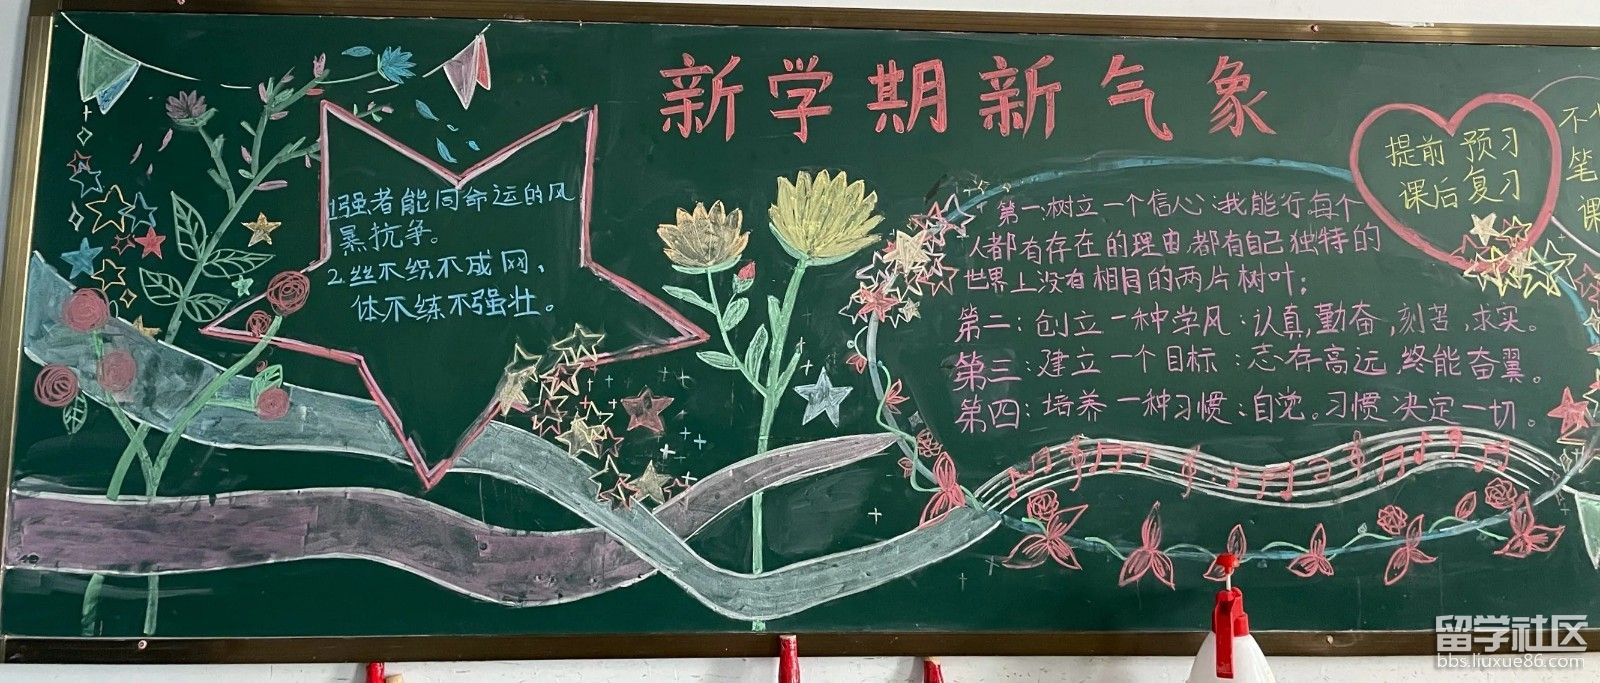 新学期新气象
1强者能同命运的风
暴抗争。
2.丝不织不成网、
体不练不强壮。
第一:树立一个信心:我能行,每个
人都有存在的理由,都有自己独特的
世界上没有相同的两片树叶;
第二:创立一种学风:认真,勤奋,刻苦,求实。
第三:建立一个目标:志存高远,终能奋翼。
第四:培养一种习惯:自觉。习惯决定一切。
提前预习
课后复习
不
笔
课
留学社区
bbs.liuxue86.com